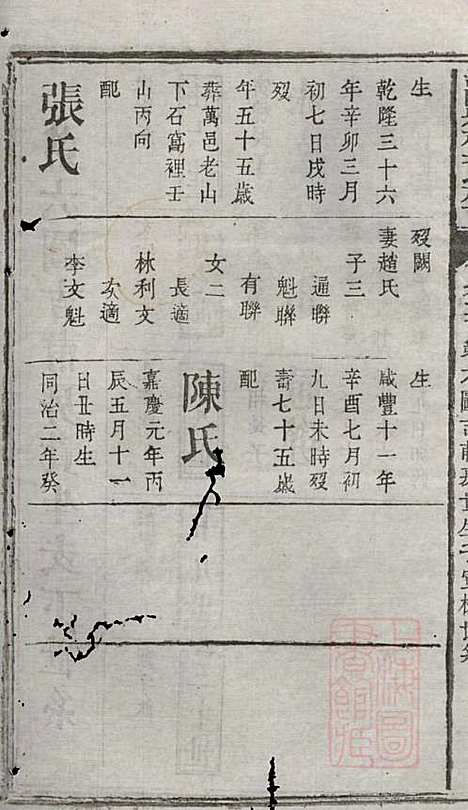 生
乾隆三十六
年辛卯三月
初七日戌時
歿
年五十五歲
葬萬邑老山
下石窩裡壬
山丙向
配
張氏
歿闕
妻趙氏
子三
通聯
魁聯
有聯
女二
長適
林利文
次適
李文魁
生
咸豐十一年
辛酉七月初
九日未時歿
壽七十五歲
配
陳氏
嘉慶元年丙
辰五月十一
日丑時生
同治二年癸
上海圖
書館藏